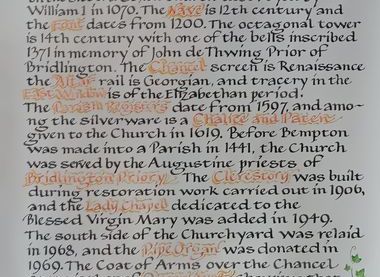 William I in 1070. The Nave is 12th century and
the Font dates from 1200. The octagonal tower
is 14th century with one of the bells inscribed
1371 in memory of John de Thwing Prior of
Bridlington. The Chancel screen is Renaissance
the Altar rail is Georgian, and tracery in the
East Window is of the Elizabethan period.
The Parish Registers date from 1597, and amo-
ng the silverware is a Chalice and Paten
given to the Church in 1619. Before Bempton
was made into a Parish in 1441, the Church
was served by the Augustine priests of
Bridlington Priory. The Clerestory was built
during restoration work carried out in 1906,
and the Lady Chapel dedicated to the
Blessed Virgin Mary was added in 1949.
The south side of the Churchyard was relaid
in 1968, and the Pipe Organ was donated in
1969. The Coat of Arms over the Chancel